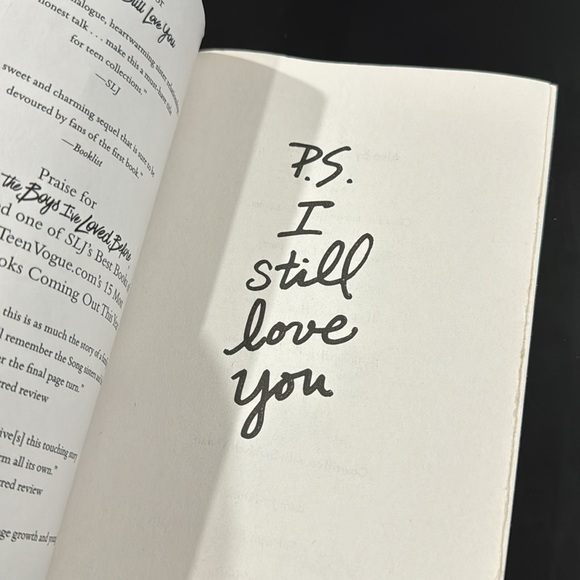 Still Love You
dialogue, heartwarming sister
honest talk . . . make this a must-have title
for teen collections."
—SLJ
sweet and charming sequel that is sure to be
devoured by fans of the first book."
—Booklist
Praise for
the Boys I've Loved Before
one of SLJ's Best Books
TeenVogue.com's 15 Most
Books Coming Out This Year
this is as much the story of a
remember the Song sisters
the final page turn."
red review
ive[s] this touching story
m all its own."
red review
ge growth and
P.S.
I
still
love
you